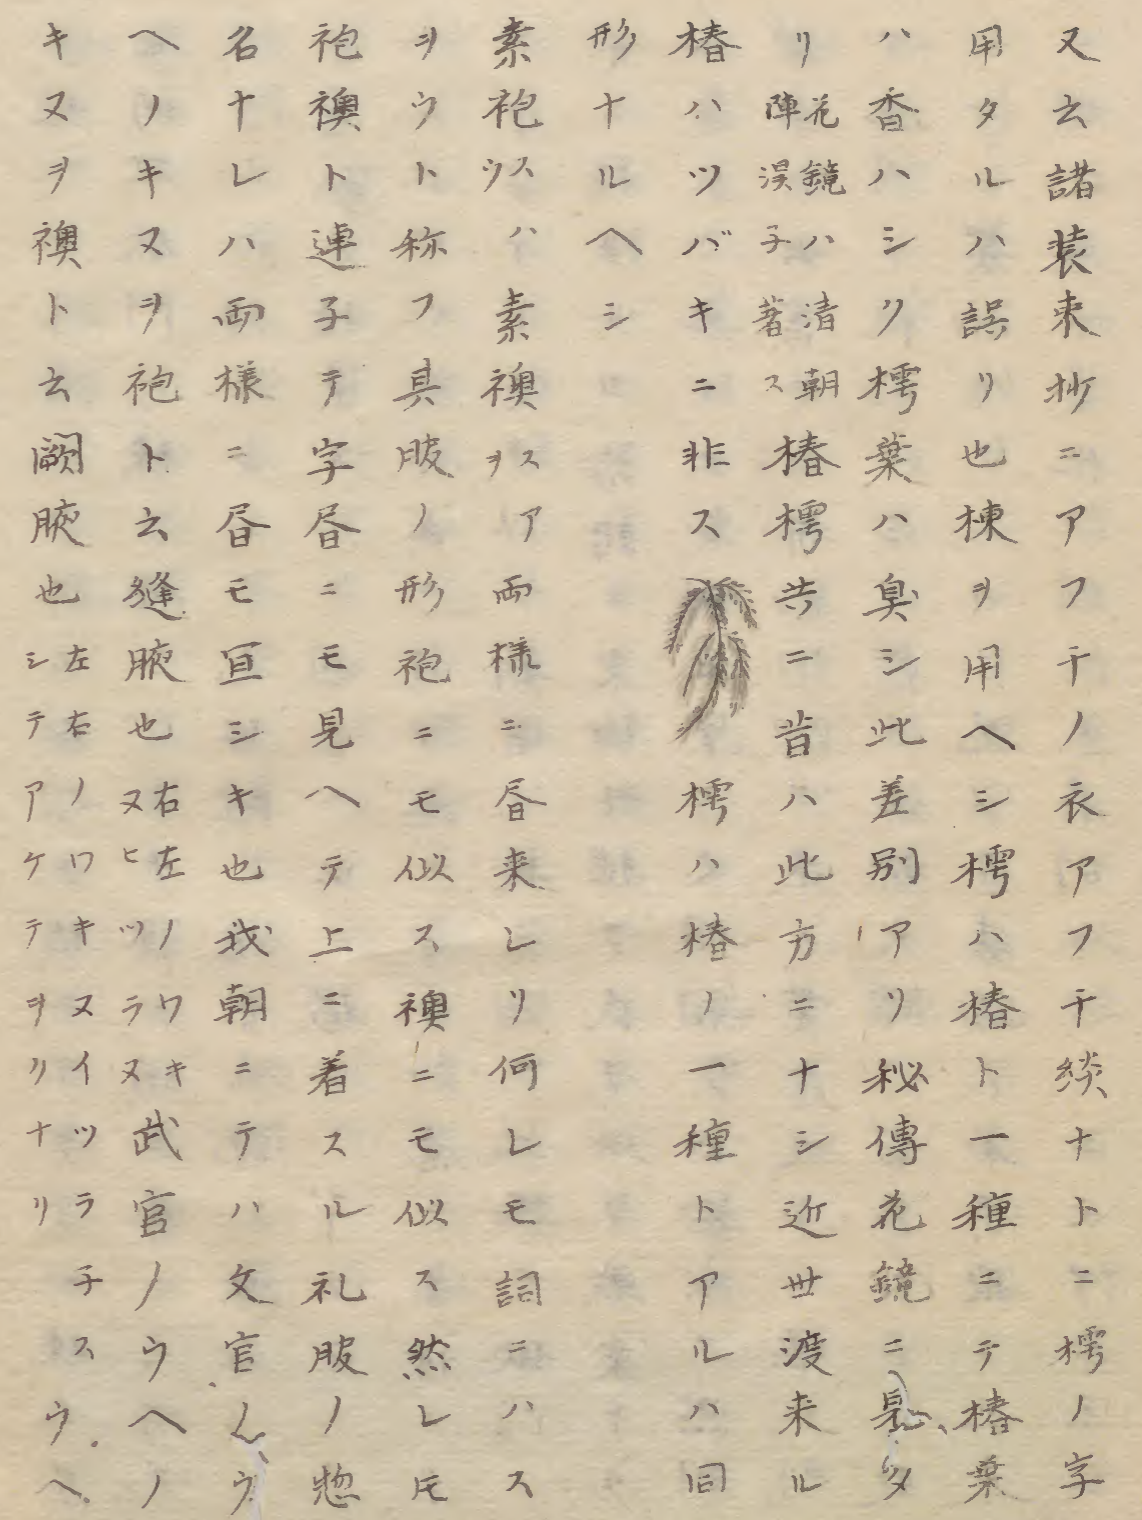 又云諸装束抄ニアフチノ衣アフチ緂ナトニ樗ノ字
用タルハ誤リ也楝ヲ用ヘシ樗ハ椿ト一種ニテ椿葉
ハ香ハシリ樗葉ハ臭シ此差別アリ秘傳花鏡ニ見タ
リ花鏡ハ清朝陳淏子著ス椿樗共ニ昔ハ此方ニナシ近世渡来ル
椿ハツバキニ非ス樗ハ椿ノ一種トアルハ同
形ナルヘシ
素袍スウハ素襖スアヲ両様ニ昏来レリ何レモ詞ニハス
ヲウト称フ具服ノ形袍ニモ似ス襖ニモ似ス然レ𪜈
袍襖ト連子テ字昏ニモ見ヘテ上ニ着スル礼服ノ惣
名ナレハ両様ニ昏モ宜シキ也我朝ニテハ文官ノウ
ヘノキヌヲ袍ト云縫腋也右左ノワキヌヒツラヌ武官ノウヘノ
キヌヲ襖ト云闕腋也左右ノワキヌイツラチスシテアケテヲリナリウヘ